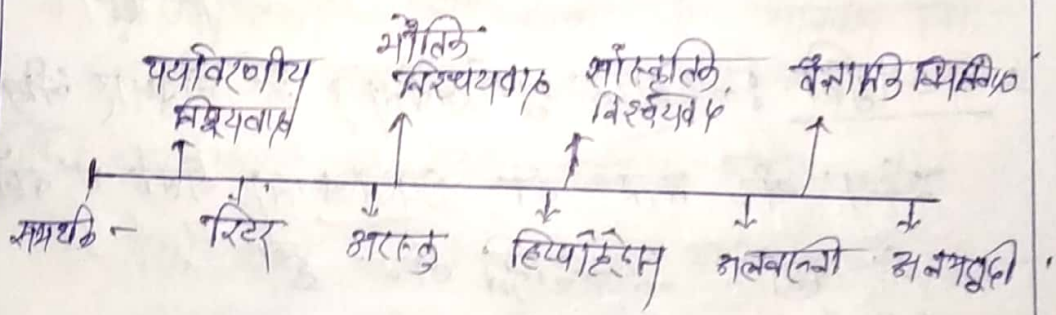 पर्यावरणीय
निश्चयवाद
भौतिक
निश्चयवाद
सांस्कृतिक
निश्चयवाद
वैज्ञानिक नियतिवाद
समर्थक - रिटर अरस्तु हिप्पोक्रेटस अलबरूनी अलमसूदी